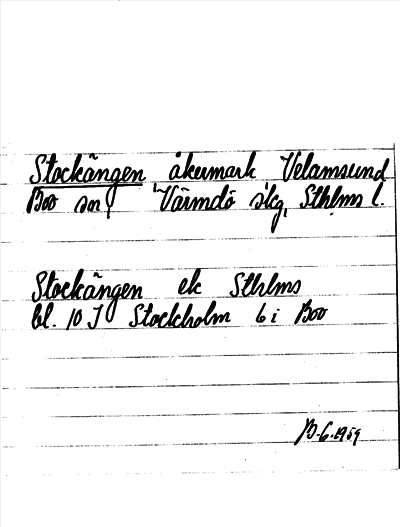 Stockängen åkermark Velamsund
Boo sn, Värmdö skg, Sthlms l.
Stockängen ek Sthlms
bl. 10 I Stockholm 6 i Boo
1959